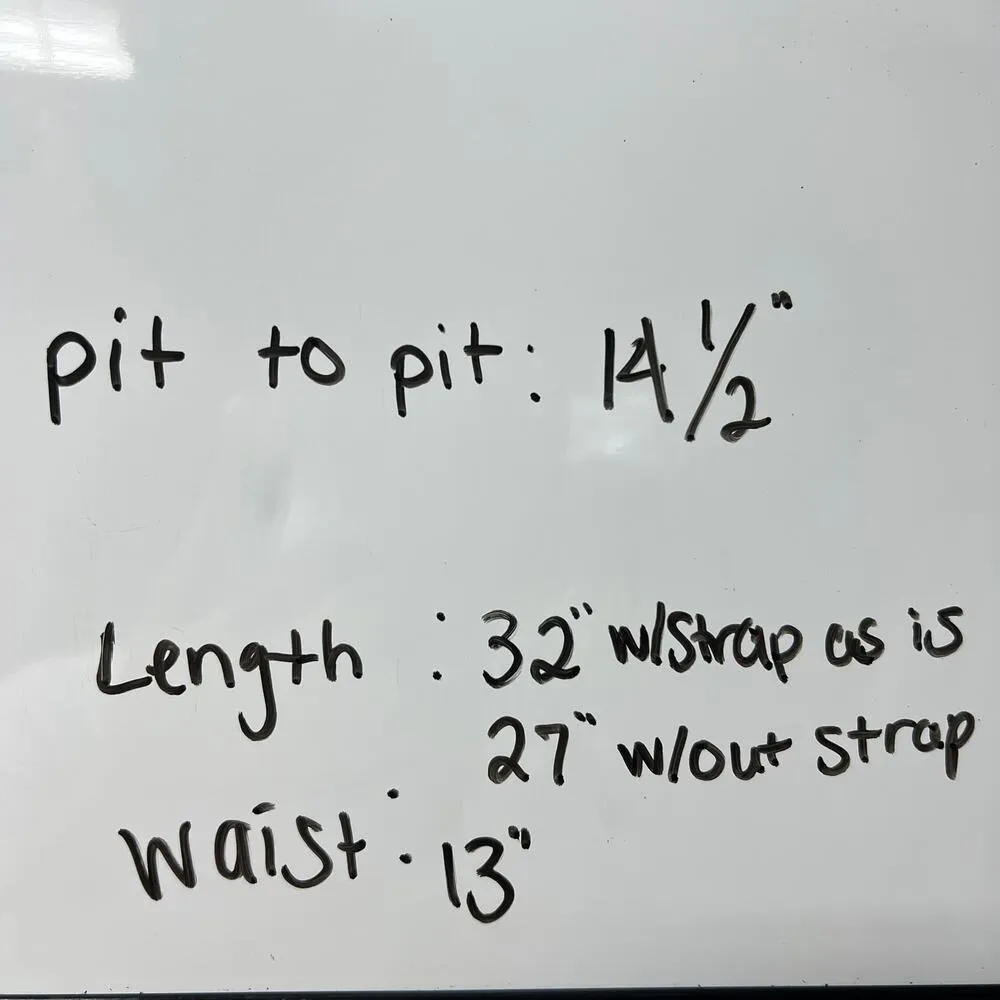 pit to pit: 14 1/2"
Length : 32" w/strap as is
27" w/out strap
waist: 13"